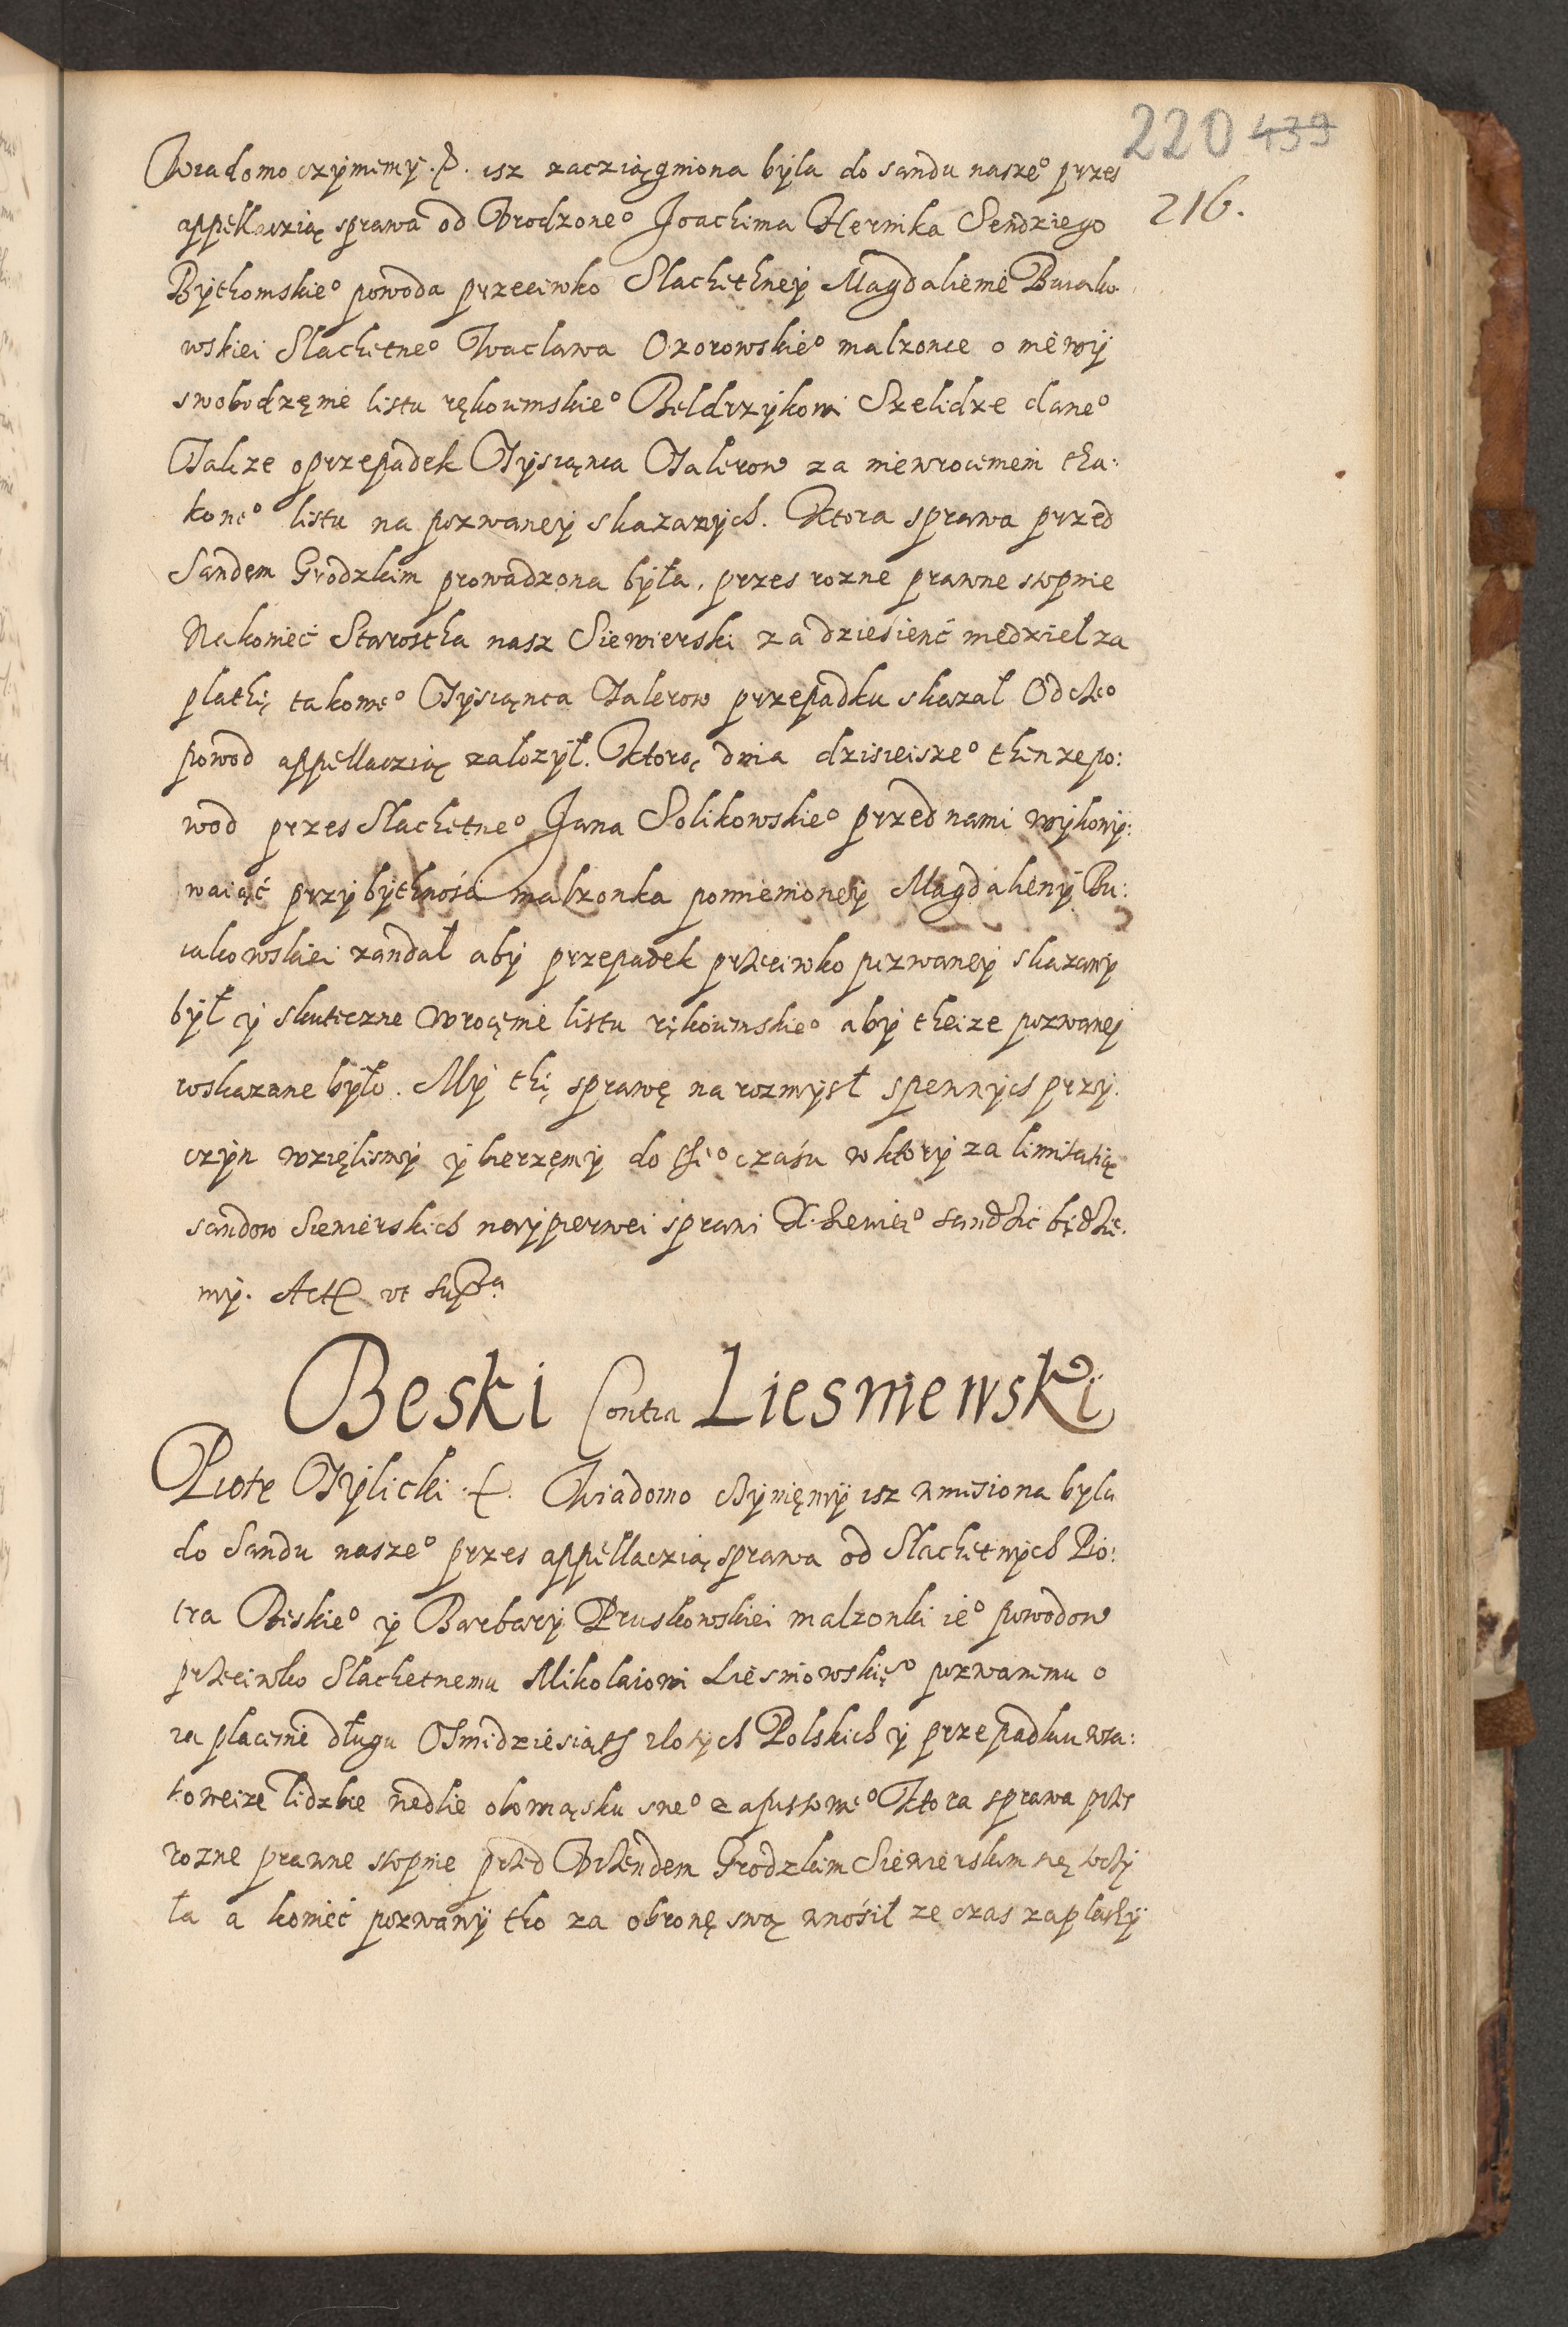 220 439
216.
Wiadomo czÿniemÿ. &. isz zacziągniona bÿla do sandu nasze° przes
appellaczią sprawa od Vrodzone° Joachima Hernika Sendziego
Bÿthomskie° powoda przeciwko Slachethneÿ Magdalenie Buiako
wskiei Slachetne° Waclawa Ozorowskie° malzonce o niewÿ
swobodzęnie listu rękoiemskie° Baldrzÿkowi Szelidze dane°
Takze o przepadek Tÿsiąnca Talerow za niewrocenieni tha:
kone° listu na pozwaneÿ skazanÿch. Ktora sprawa przed
Sandem Grodzkim prowadzona bÿła, przes rozne prawne stopnie
Nakoniec Starostha nasz Siewierski za dziesienć niedziel za
plathę takowe° Tÿsiąnca Talerow przepadku skazał Od cze°
powod appellaczią załozÿł. Ktorą dnia dzisieisze° then ze po:
wod przes Slachetne° Jana Solikowskie° przed nami wÿkonÿ:
waiąć przÿ bÿthnośći małzonka pomienioneÿ Magdalenÿ Bu:
iakowskiei zandał abÿ przepadek przeciwko pozwaneÿ skazanÿ
bÿł ÿ skuteczne wrocęnie listu rękoiemskie° abÿ theize pozwaneÿ
roskazane bÿło. Mÿ thę sprawę na rozmÿsł spewnÿch przÿ.
czÿn wzięlismÿ ÿ bierzęmÿ do the° czasu w ktorÿ za limitatią
sandow Siewierskich naÿpierwei sprawi X. Siewie° sandzić będzie.
mÿ. Act vt supra
Beski Contra Liesniewski
Piotr Tÿlicki &. Wiadomo czÿnięmÿ isz wniesiona byla
do Sandu nasze° przes appellaczią sprawa od Slachetnÿch Pio:
tra Beskie° ÿ Barbarÿ Pruskowskiei malzonki ie° powodow
przeciwko Slachetnemu Mikolaiowi Liesniowskię° pozwanemu o
za placenie długu Osmidziesiąth zlotÿch Polskich ÿ przepadku wta:
koweize lidzbie wedlie obowiąsku swe° zapissowe° Ktora sprawa przes
rozne prawne stopnie przed Vrzendem Grodzkim Siewierskim się toczÿ
ła a koniec pozwanÿ tho za obronę swą wnosił ze czas zaplathÿ